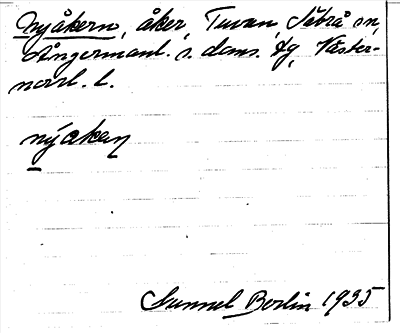 Nyåkern, åker, Tuvan, Säbrå sn,
Ångermanl. s. doms. tg, Väster-
norrl. l.
nýakeṇ
Gunnel Berlin 1935